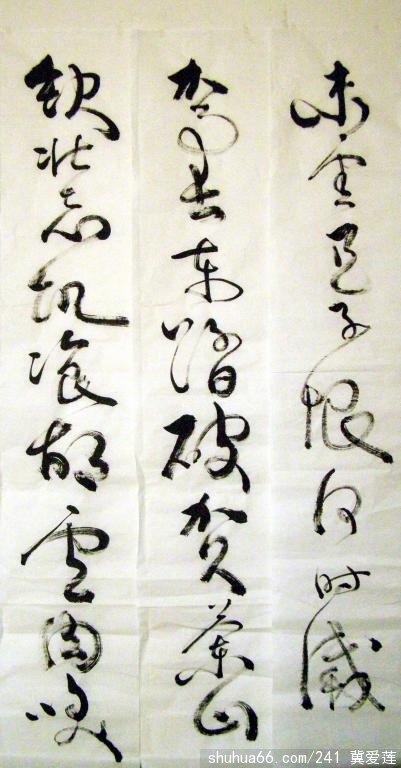 未雪臣子恨何时滅
驾长车踏破贺兰山
缺壮志饥餐胡虏肉咲
shuhua66.com/241 冀爱莲